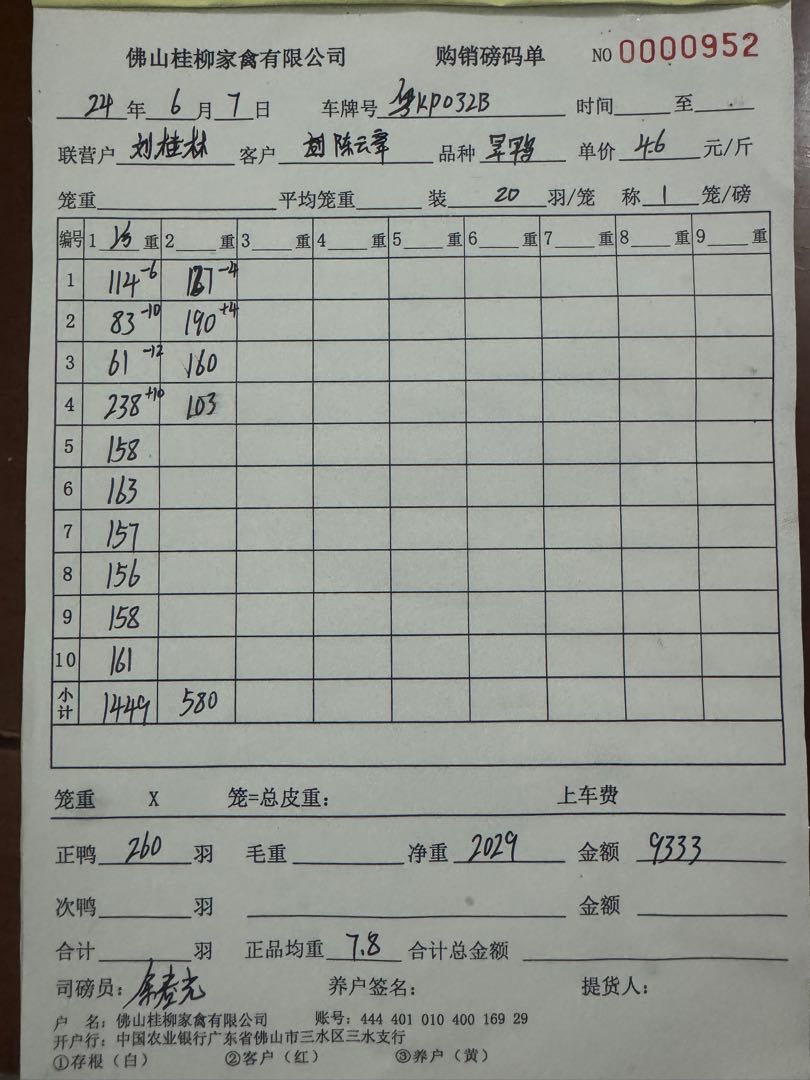 佛山桂柳家禽有限公司 购销磅码单 NO 0000952
24 年 6 月 7 日 车牌号 粤KP032B 时间 至
联营户 刘桂林 客户 陈云章 品种 旱鸭 单价 4.6 元/斤
笼重 平均笼重 装 20 羽/笼 称 1 笼/磅
编号 1 重 2 重 3 重 4 重 5 重 6 重 7 重 8 重 9 重
1 114-6 -4
2 83-10 190+4
3 61-12 160
4 238+10 103
5 158
6 163
7 157
8 156
9 158
10 161
小计 1449 580
笼重 X 笼=总皮重: 上车费
正鸭 260 羽 毛重 净重 2029 金额 9333
次鸭 羽 金额
合计 羽 正品均重 7.8 合计总金额
司磅员: 养户签名: 提货人:
户 名: 佛山桂柳家禽有限公司 账号: 444 401 010 400 169 29
开户行: 中国农业银行广东省佛山市三水区三水支行
①存根(白) ②客户(红) ③养户(黄)